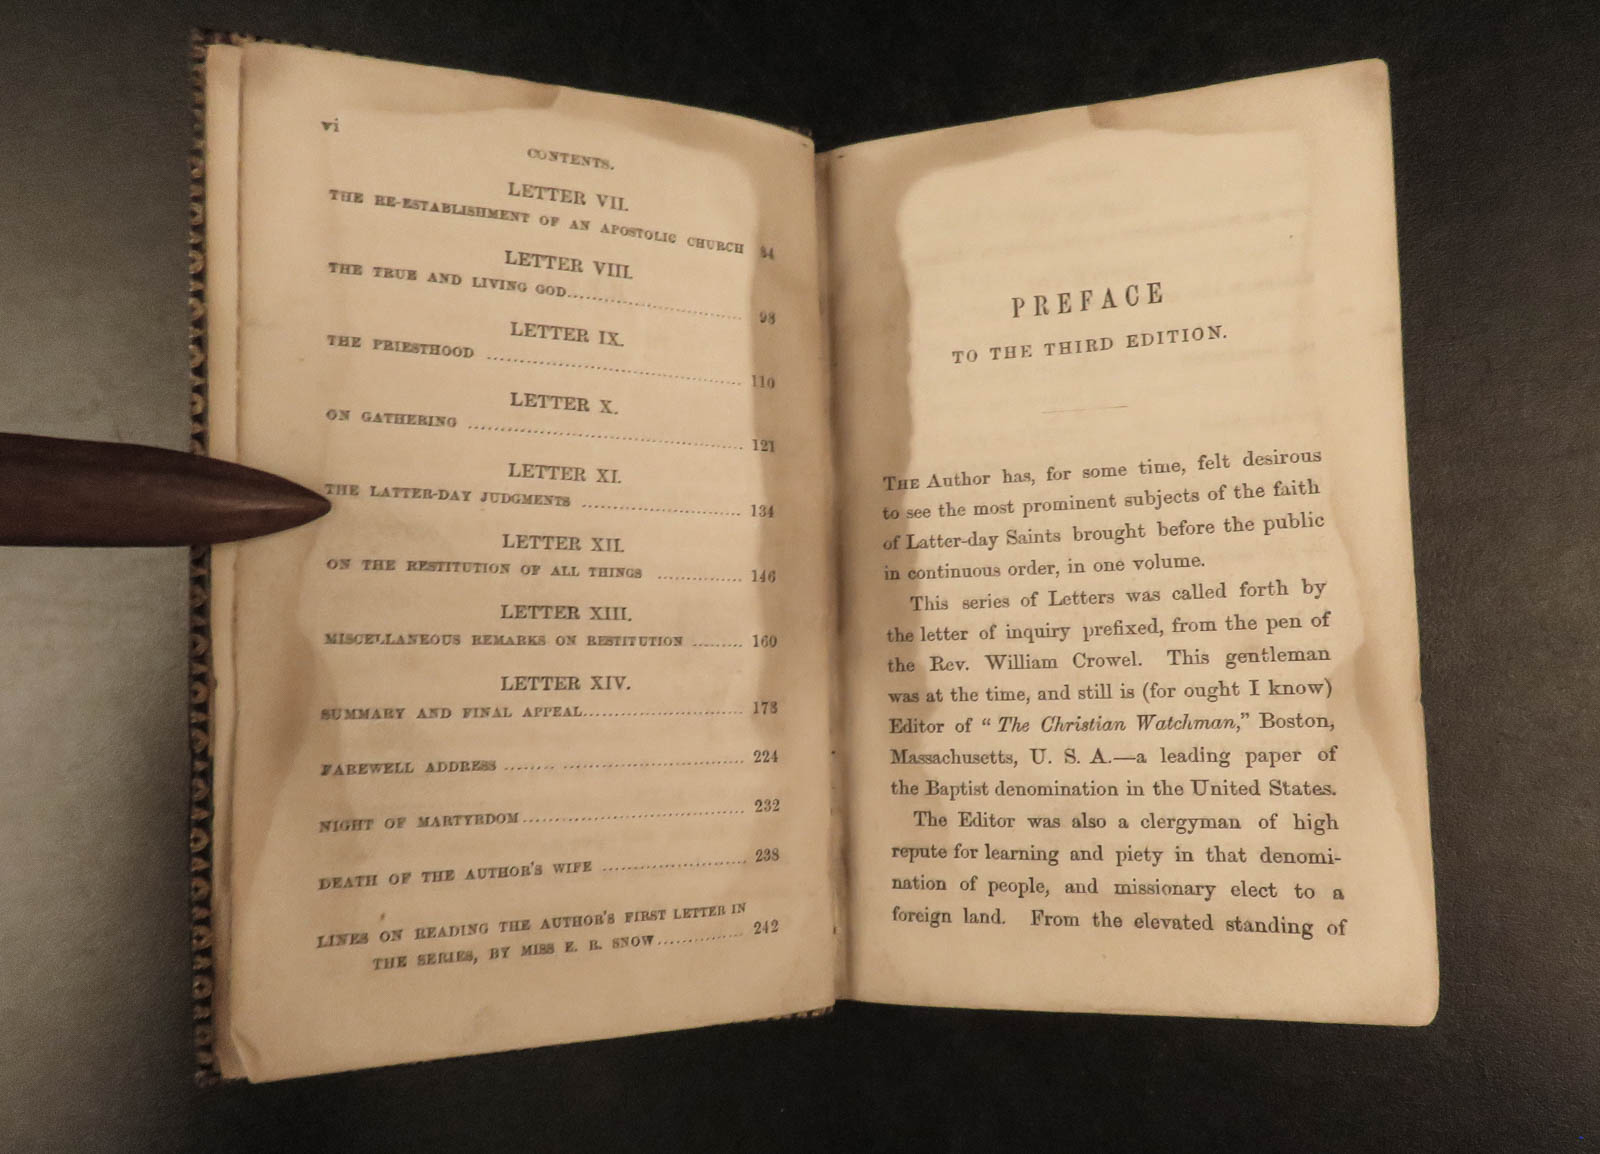 vi
CONTENTS.
LETTER VII.
THE RE-ESTABLISHMENT OF AN APOSTOLIC CHURCH 84
LETTER VIII.
THE TRUE AND LIVING GOD 98
LETTER IX.
THE PRIESTHOOD 110
LETTER X.
ON GATHERING 121
LETTER XI.
THE LATTER-DAY JUDGMENTS 134
LETTER XII.
ON THE RESTITUTION OF ALL THINGS 146
LETTER XIII.
MISCELLANEOUS REMARKS ON RESTITUTION 160
LETTER XIV.
SUMMARY AND FINAL APPEAL 178
FAREWELL ADDRESS 224
NIGHT OF MARTYRDOM 232
DEATH OF THE AUTHOR'S WIFE 238
LINES ON READING THE AUTHOR'S FIRST LETTER IN
THE SERIES, BY MISS E. R. SNOW 242
PREFACE
TO THE THIRD EDITION.
THE Author has, for some time, felt desirous
to see the most prominent subjects of the faith
of Latter-day Saints brought before the public
in continuous order, in one volume.
This series of Letters was called forth by
the letter of inquiry prefixed, from the pen of
the Rev. William Crowel. This gentleman
was at the time, and still is (for ought I know)
Editor of "The Christian Watchman," Boston,
Massachusetts, U. S. A.—a leading paper of
the Baptist denomination in the United States.
The Editor was also a clergyman of high
repute for learning and piety in that denomi-
nation of people, and missionary elect to a
foreign land. From the elevated standing of